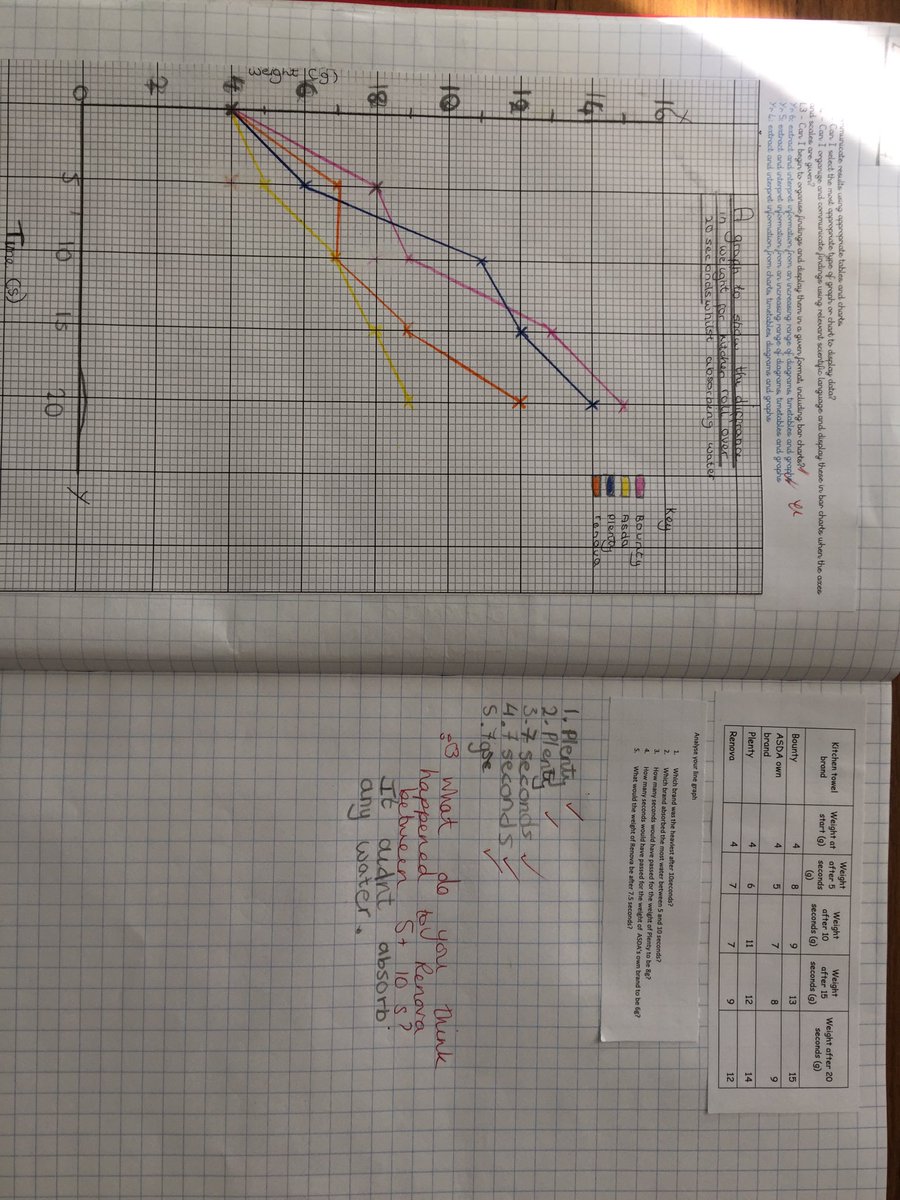 municate results using appropriate tables and charts
Can I select the most appropriate type of graph or chart to display data?
Can I organise and communicate findings using relevant scientific language and display these in bar charts when the axes
and scales are given?
L3 - Can I begin to organise findings and display them in a given format, including bar charts?
Yr 6: extract and interpret information from an increasing range of diagrams, timetables and graphs
Yr 5: extract and interpret information from an increasing range of diagrams, timetables and graphs
Yr 4: extract and interpret information from charts, timetables, diagrams and graphs
A graph to show the diffrance
in weight for kitchen roll over
20 seconds whilst absorbing water
Key
Bounty
Asda
Plenty
renova
X
16
14
12
10
8
6
4
2
0
weight (g)
5
10
15
20
Y
Time (s)
Kitchen towel brand Weight at start (g) Weight after 5 seconds (g) Weight after 10 seconds (g) Weight after 15 seconds (g) Weight after 20 seconds (g)
Bounty 4 8 9 13 15
ASDA own brand 4 5 7 8 9
Plenty 4 6 11 12 14
Renova 4 7 7 9 12
Analyse your line graph
1. Which brand was the heaviest after 10seconds?
2. Which brand absorbed the most water between 5 and 10 seconds?
3. How many seconds would have passed for the weight of Plenty to be 8g?
4. How many seconds would have passed for the weight of ASDA's own brand to be 6g?
5. What would the weight of Renova be after 7.5 seconds?
1. Plenty
2. Plenty
3. 7 seconds
4. 7 seconds
5. 7g
What do you think
happened to Renova
between 5 + 10 s?
It didnt absorb
any water.